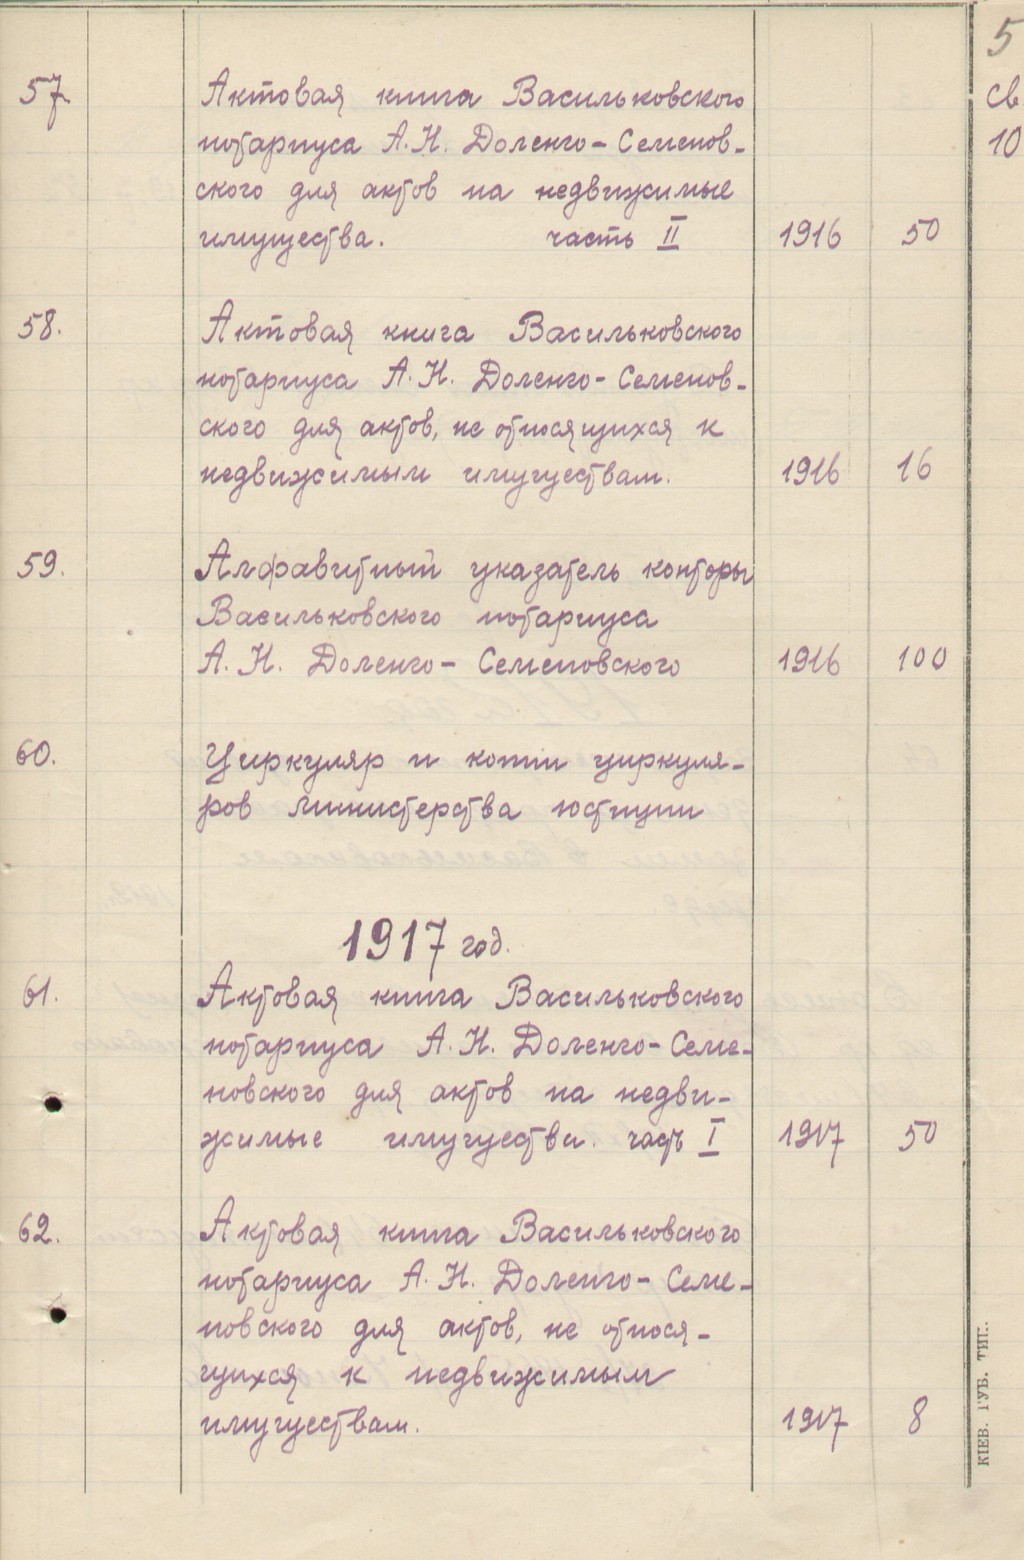 5
св
10
57. Актовая книга Васильковского
нотариуса А.Н. Доленго-Семенов-
ского для актов на недвижимые
имущества. часть II 1916 50
58. Актовая книга Васильковского
нотариуса А.Н. Доленго-Семенов-
ского для актов, не относящихся к
недвижимым имуществам. 1916 16
59. Алфавитный указатель конторы
Васильковского нотариуса
А. Н. Доленго-Семеновского 1916 100
60. Циркуляр и копии циркуля-
ров министерства юстиции
1917 год.
61. Актовая книга Васильковского
нотариуса А.Н. Доленго-Семе-
новского для актов на недви-
жимые имущества. часть I 1917 50
62. Актовая книга Васильковского
нотариуса А.Н. Доленго-Семе-
новского для актов, не относя-
щихся к недвижимым
имуществам. 1917 8
КІЕВ. ГУБ. ТИП.